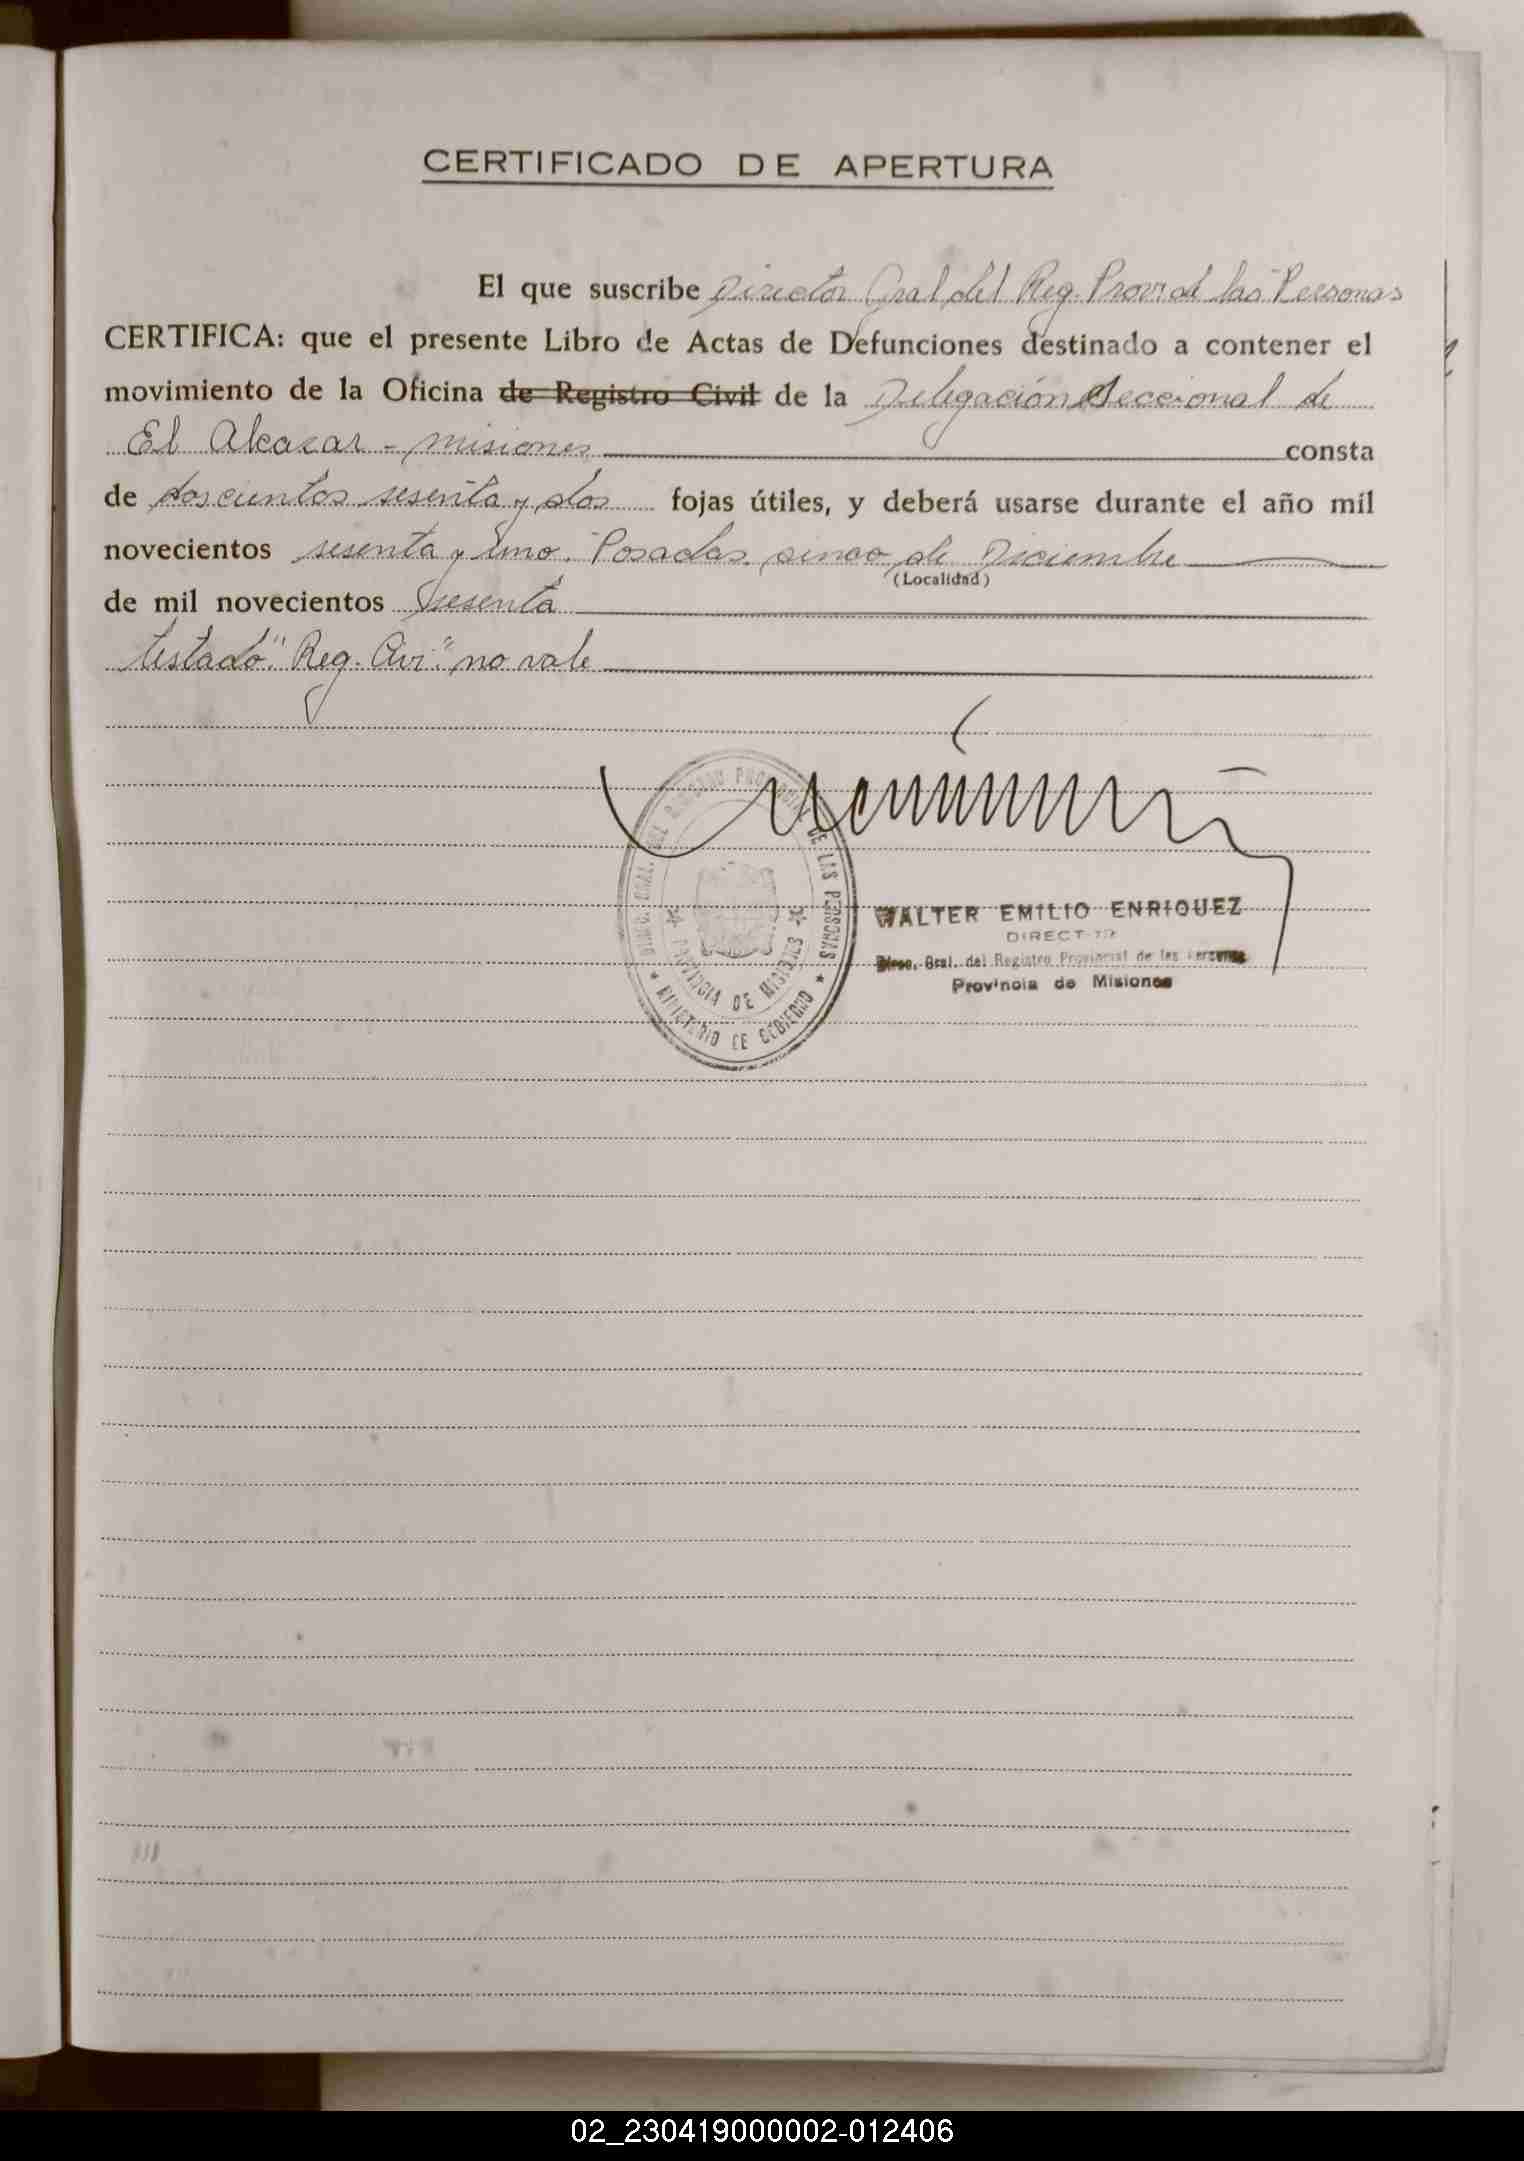 CERTIFICADO DE APERTURA
El que suscribe Director Gral del Reg. Prov. de las Personas
CERTIFICA: que el presente Libro de Actas de Defunciones destinado a contener el
movimiento de la Oficina de Registro Civil de la Delegación Seccional de
El Alcazar - misiones consta
de doscientos sesenta y dos fojas útiles, y deberá usarse durante el año mil
novecientos sesenta y uno. Posadas, cinco de Diciembre
(Localidad)
de mil novecientos sesenta
testado: "Reg. Civi" no vale
DIREC. GRAL. DEL REGISTRO PROVINCIAL DE LAS PERSONAS
PROVINCIA DE MISIONES
MINISTERIO DE GOBIERNO
WALTER EMILIO ENRIQUEZ
DIRECTOR
Direc. Gral. del Registro Provincial de las Personas
Provincia de Misiones
02_230419000002-012406